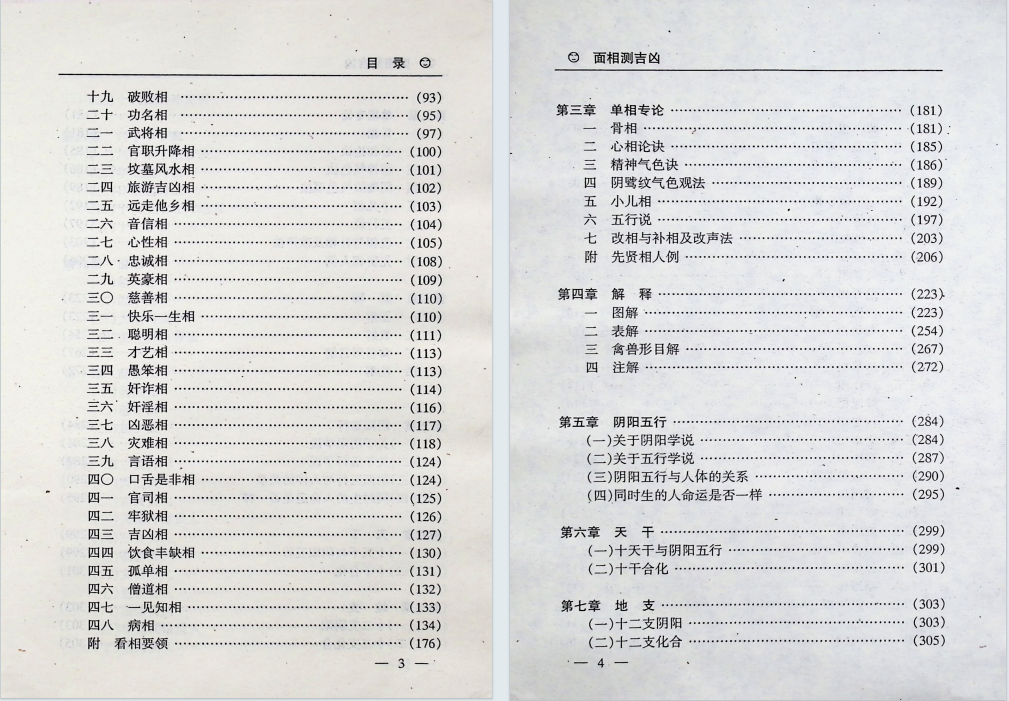 目 录
十九 破败相 ………………………… (93)
二十 功名相 ………………………… (95)
二一 武将相 ………………………… (97)
二二 官职升降相 ………………………… (100)
二三 坟墓风水相 ………………………… (101)
二四 旅游吉凶相 ………………………… (102)
二五 远走他乡相 ………………………… (103)
二六 音信相 ………………………… (104)
二七 心性相 ………………………… (105)
二八 忠诚相 ………………………… (108)
二九 英豪相 ………………………… (109)
三〇 慈善相 ………………………… (110)
三一 快乐一生相 ………………………… (110)
三二 聪明相 ………………………… (111)
三三 才艺相 ………………………… (113)
三四 愚笨相 ………………………… (113)
三五 奸诈相 ………………………… (114)
三六 奸淫相 ………………………… (116)
三七 凶恶相 ………………………… (117)
三八 灾难相 ………………………… (118)
三九 言语相 ………………………… (124)
四〇 口舌是非相 ………………………… (124)
四一 官司相 ………………………… (125)
四二 牢狱相 ………………………… (126)
四三 吉凶相 ………………………… (127)
四四 饮食丰缺相 ………………………… (130)
四五 孤单相 ………………………… (131)
四六 僧道相 ………………………… (132)
四七 一见知相 ………………………… (133)
四八 病相 ………………………… (134)
附 看相要领 ………………………… (176)
— 3 —
面相测吉凶
第三章 单相专论 ………………………… (181)
一 骨相 ………………………… (181)
二 心相论诀 ………………………… (185)
三 精神气色诀 ………………………… (186)
四 阴骘纹气色观法 ………………………… (189)
五 小儿相 ………………………… (192)
六 五行说 ………………………… (197)
七 改相与补相及改声法 ………………………… (203)
附 先贤相人例 ………………………… (206)
第四章 解 释 ………………………… (223)
一 图解 ………………………… (223)
二 表解 ………………………… (254)
三 禽兽形目解 ………………………… (267)
四 注解 ………………………… (272)
第五章 阴阳五行 ………………………… (284)
(一)关于阴阳学说 ………………………… (284)
(二)关于五行学说 ………………………… (287)
(三)阴阳五行与人体的关系 ………………………… (290)
(四)同时生的人命运是否一样 ………………………… (295)
第六章 天 干 ………………………… (299)
(一)十天干与阴阳五行 ………………………… (299)
(二)十干合化 ………………………… (301)
第七章 地 支 ………………………… (303)
(一)十二支阴阳 ………………………… (303)
(二)十二支化合 ………………………… (305)
— 4 —